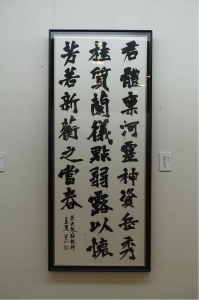 君體稟河靈神資岳秀
桂質蘭儀點弱露以懷
芳若新蘅之當春